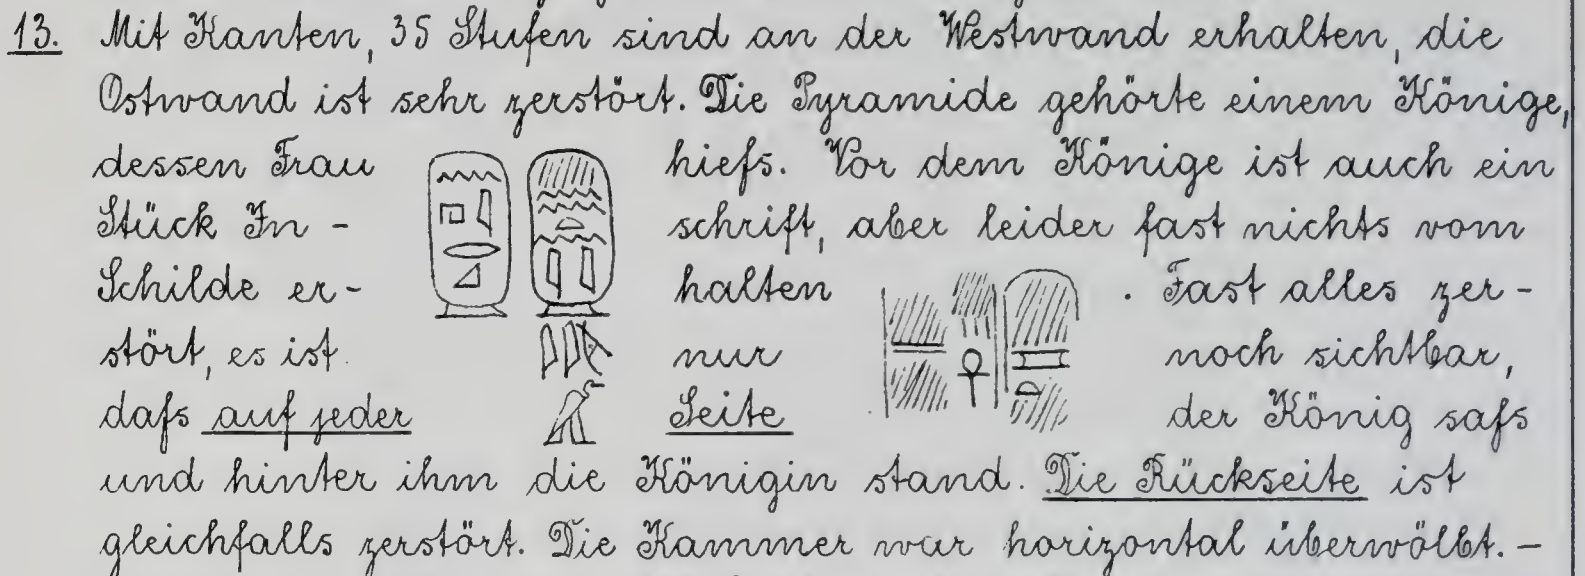 13. Mit Kanten, 35 Stufen sind an der Westwand erhalten, die
Ostwand ist sehr zerstört. Die Pyramide gehörte einem Könige,
dessen Frau hiefs. Vor dem Könige ist auch ein
Stück In- schrift, aber leider fast nichts vom
Schilde er- halten . Fast alles zer-
stört, es ist nur noch sichtbar,
dafs auf jeder Seite der König safs
und hinter ihm die Königin stand. Die Rückseite ist
gleichfalls zerstört. Die Kammer war horizontal überwölbt. –